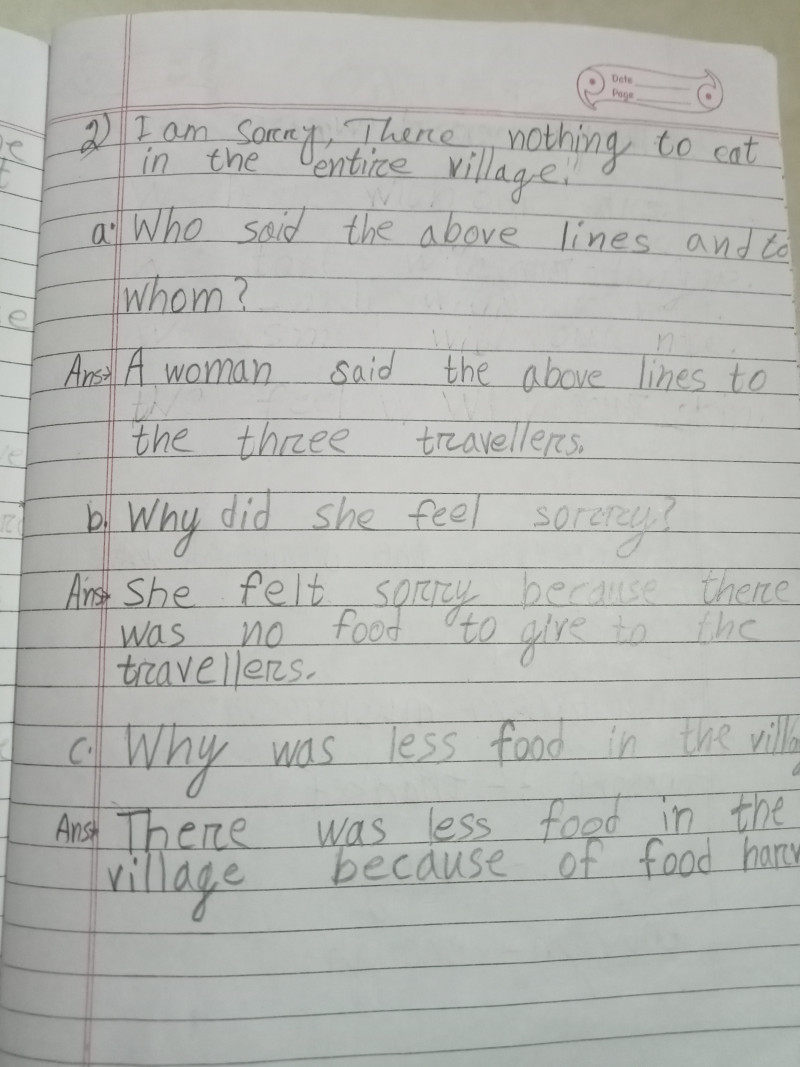 Date
Page
2) I am sorry, There nothing to eat
in the entire village."
a. Who said the above lines and to
whom?
Ans→ A woman said the above lines to
the three travellers.
b. Why did she feel sorry?
Ans→ She felt sorry because there
was no food to give to the
travellers.
c. Why was less food in the villag
Ans→ There was less food in the
village because of food harv